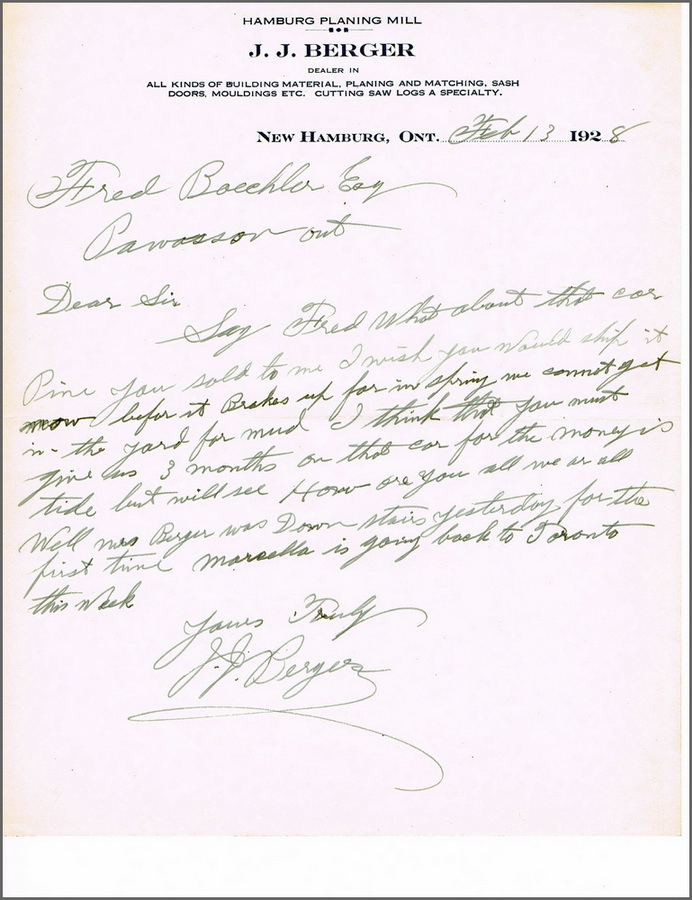 HAMBURG PLANING MILL
J. J. BERGER
DEALER IN
ALL KINDS OF BUILDING MATERIAL, PLANING AND MATCHING, SASH
DOORS, MOULDINGS ETC. CUTTING SAW LOGS A SPECIALTY.
NEW HAMBURG, ONT. Feb 13 1928
Fred Boechler Esq
Pawasson ont
Dear Sir
Say Fred What about that car
Pine you sold to me I wish you would ship it
now befor it Brakes up for in spring we cannot get
in the yard for mud I think that you must
give us 3 months on that car for the money is
tide but will see How are you all we ar all
Well mrs Berger was Down stairs yesterday for the
first time marcella is going back to Toronto
this week
yours Truly
J. J. Berger